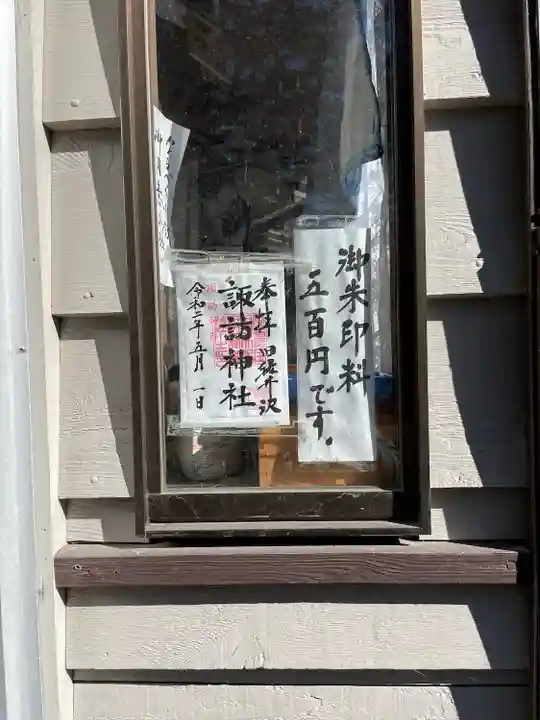 御朱印料
五百円です。
奉拝 旧軽井沢
諏訪神社
令和二年五月一日